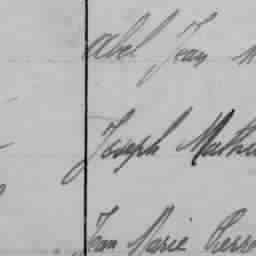 Abel Jean M
Joseph Mathu
Jean Marie Pierre